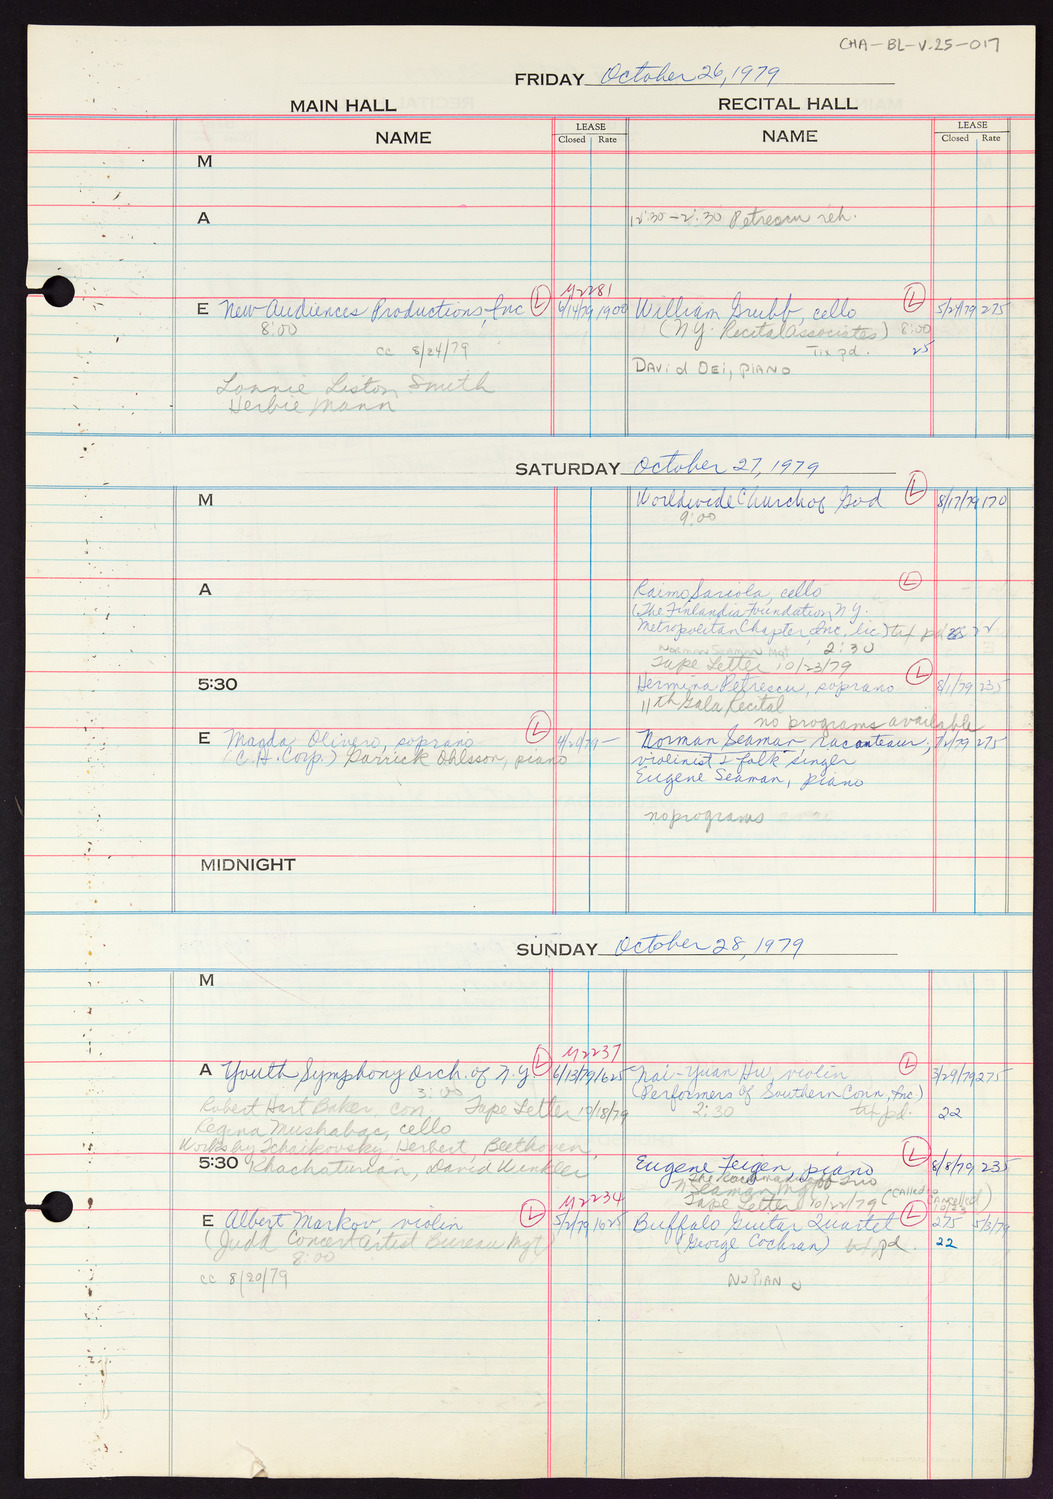 CHA-BL-V.25-017
FRIDAY October 26, 1979
MAIN HALL
RECITAL HALL
NAME
LEASE
Closed Rate
NAME
LEASE
Closed Rate
M
A
12:30-2:30 Petrescu reh.
M2281
E New Audiences Productions, Inc L 6/14/79 1900
8:00
cc 8/24/79
Lonnie Liston Smith
Herbie Mann
William Grubb, cello L 5/24/79 275
(N.Y. Recital Associates) 8:00
Tix pd. 25
DAViD DEi, PIANO
SATURDAY October 27, 1979
M
Worldwide Church of God L 8/17/79 170
9:00
A
Raimo Sariola, cello L
(The Finlandia Foundation, N.Y.
Metropolitan Chapter, Inc, lic) tix pd 22
Norman Seaman Mgt 2:30
Tape Letter 10/23/79
5:30
Hermina Petrescu, soprano L 8/1/79 235
11th Gala Recital
no programs available
E Magda Olivero, soprano L
(C.H. Corp.) Garrick Ohlsson, piano
Norman Seaman, raconteur, 7/2/79 275
violinist & folk singer
Eugene Seaman, piano
no programs
MIDNIGHT
SUNDAY October 28, 1979
M
M2237
A Youth Symphony Orch. of N.Y. L 6/13/79 1625
3:00
Robert Hart Baker, con. Tape Letter 10/18/79
Regina Mushabac, cello
Works by Tchaikovsky, Herbert, Beethoven,
Khachaturian, David Winkler
Nai-Yuan Hu, violin L 3/29/79 275
(Performers of Southern Conn, Inc)
2:30 tix pd. 22
5:30
Eugene Feigen, piano L 8/8/79 235
The Rachmaninoff Trio
N. Seaman Mgt
Tape Letter 10/22/79 (Called
Cancelled)
M2234
E Albert Markov, violin L 5/2/79 1625
(Judd Concert Artist Bureau Mgt)
8:00
cc 8/20/79
Buffalo Guitar Quartet L 275 5/3/79
(George Cochran) tix pd. 22
NO PIANO